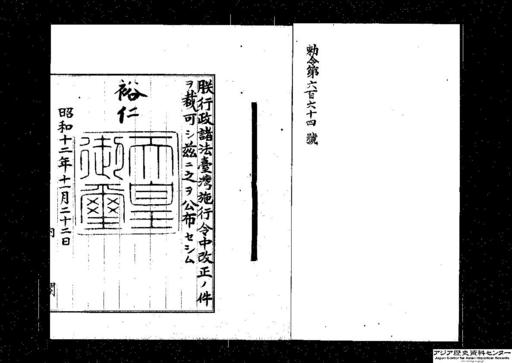 勅令第六百六十四號
朕行政諸法臺灣施行令中改正ノ件
ヲ裁可シ茲ニ之ヲ公布セシム
裕仁
天皇
御璽
昭和十二年十一月二十二日
アジア歴史資料センター
Japan Center for Asian Historical Records